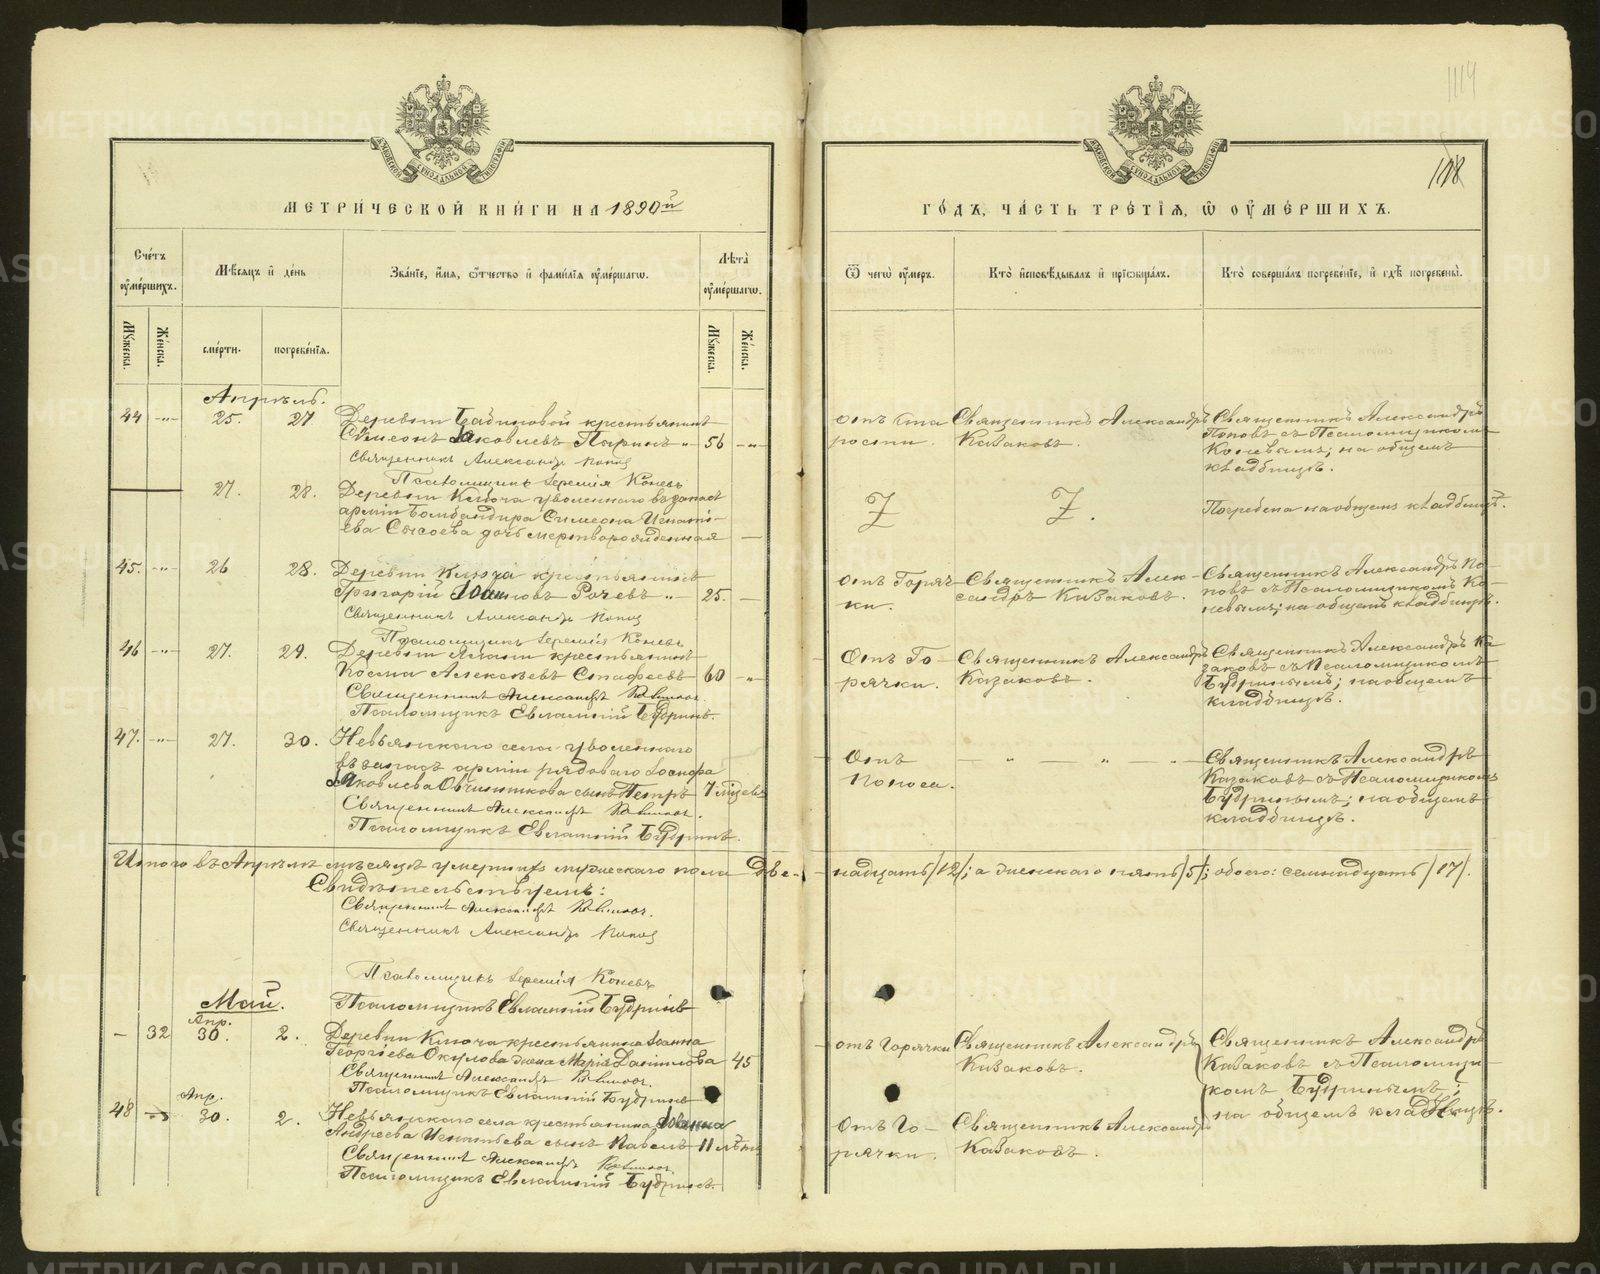 1114
118
МОСКОВСКОЙ СУНОДАЛЬНОЙ ТИПОГРАФІИ
МОСКОВСКОЙ СУНОДАЛЬНОЙ ТИПОГРАФІИ
МЕТРИ́ЧЕСКОЙ КНИ́ГИ НА 1890й
ГО́ДЪ, ЧА́СТЬ ТРЕ́ТІѦ, Ѿ ОУ҆МЕ́РШИХЪ.
Сче́тъ оу҆ме́ршихъ.
Мѣ́сяцъ и҆ де́нь
Зва́нїе, и҆́мя, ѻ҆́тчество и҆ фами́лїя оу҆ме́ршагѡ.
Лѣ́та оу҆ме́ршагѡ.
Ѿ чегѡ̀ оу҆́меръ.
Кто̀ и҆сповѣ́дывалъ и҆ прїѡбща́лъ.
Кто̀ соверша́лъ погребе́нїе, и҆ гдѣ̀ погребены̀.
Мꙋ́жеска.
Же́нска.
сме́рти.
погребе́нїя.
Мꙋ́жеска.
Же́нска.
Апрѣль.
44 -"- 25. 27 Деревни крестьянинъ
Симеонъ Яковлевъ Паринъ -" 56 -"-
Священникъ Александръ Попов
Псаломщикъ Іеремія Коневъ
отъ ста
рости.
Священникъ Александръ
Казаковъ.
Священникъ Александръ
Поповъ съ Псаломщикомъ
Коневымъ; на общемъ
кладбищѣ.
27. 28. Деревни Ключа уволеннаго въ запасъ
арміи Бомбандира Симеона Игнать-
ева Сысоева дочь мертворожденная —
Z
Z.
Погребена на общемъ кладбищѣ.
45. -"- 26 28. Деревни Ключа крестьянинъ
Григорій Іоанновъ Рочевъ -" 25. —
Священникъ Александръ Попов
Псаломщикъ Іеремія Коневъ
отъ Горяч-
ки.
Священникъ Алек-
сандръ Казаковъ.
Священникъ Александръ По-
повъ съ Псаломщикомъ Ко-
невымъ; на общемъ кладбищѣ.
46 -"- 27. 29. Деревни крестьянинъ
Косма Алексѣевъ Стафеевъ 60 -"
Священникъ Александръ Казаков
Псаломщикъ Евлампій Будринъ.
Отъ Го-
рячки.
Священникъ Александръ
Казаковъ.
Священникъ Александръ Ка-
заковъ съ Псаломщикомъ
Будринымъ; на общемъ
кладбищѣ.
47. -"- 27. 30. Невьянскаго села уволеннаго
въ запасъ арміи рядоваго Іосифа
Яковлева Овчинникова сынъ Петръ 7 мѣсяцевъ
Священникъ Александръ Казаков.
Псаломщикъ Евлампій Будринъ.
Отъ
Поноса.
— " " — " —
Священникъ Александръ
Казаковъ съ Псаломщикомъ
Будринымъ; на общемъ
кладбищѣ.
Итого въ Апрѣлѣ мѣсяцѣ умершихъ мужескаго пола две-
надцать /12/; а женскаго пять /5/; обоего: семнадцать /17/.
Свидѣтельствуемъ:
Священникъ Александръ Казаков.
Священникъ Александръ Попов
Псаломщикъ Іеремія Коневъ
Псаломщикъ Евлампій Будринъ
Май.
Апр.
- 32 30. 2. Деревни Ключа крестьянина Іоанна
Георгіева Окулова жена Марія Данилова 45
Священникъ Александръ Казаков.
Псаломщикъ Евлампій Будринъ
отъ Горячки
Священникъ Александръ
Казаковъ.
Священникъ Александръ
Казаковъ съ Псаломщи-
комъ Будринымъ;
на общемъ кладбищѣ.
Апр.
48 -"- 30. 2. Невьянскаго села крестьянина Іоанна
Андреева Игнатьева сынъ Павелъ 11 лѣтъ
Священникъ Александръ Казаков.
Псаломщикъ Евлампій Будринъ.
Отъ Го-
рячки.
Священникъ Александръ
Казаковъ.
METRIKI.GASO-URAL.RU